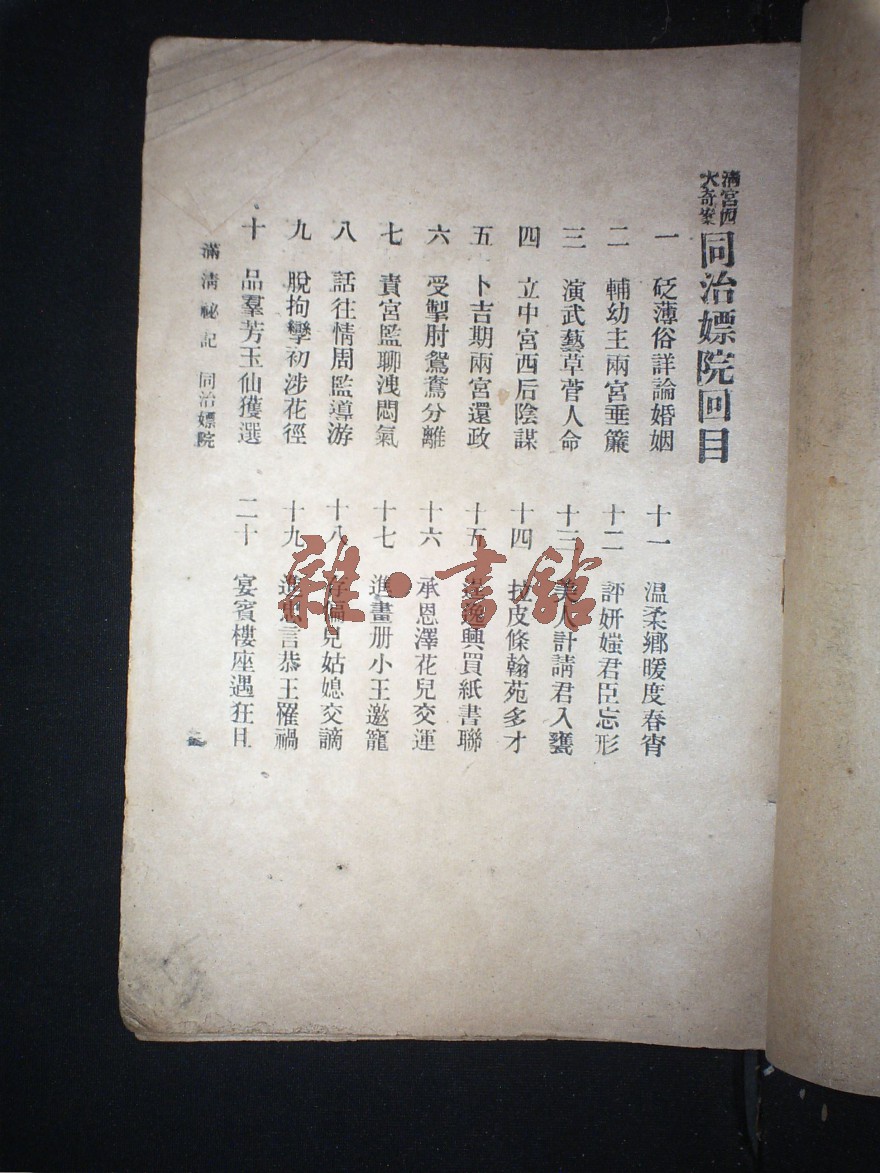 清宮四大奇案
同治嫖院回目
一 砭薄俗詳論婚姻
二 輔幼主兩宮垂簾
三 演武藝草菅人命
四 立中宮西后陰謀
五 卜吉期兩宮還政
六 受掣肘鴛鴦分離
七 責宮監聊洩悶氣
八 話往情周監導游
九 脫拘攣初涉花徑
十 品羣芳玉仙獲選
十一 温柔鄉暖度春宵
十二 評妍媸君臣忘形
十三 美人計請君入甕
十四 拉皮條翰苑多才
十五 逸興買紙書聯
十六 承恩澤花兒交運
十七 進畫册小王邀寵
十八 存偏見姑媳交謫
十九 進忠言恭王罹禍
二十 宴賓樓座遇狂且
滿清祕記 同治嫖院
雜·書館